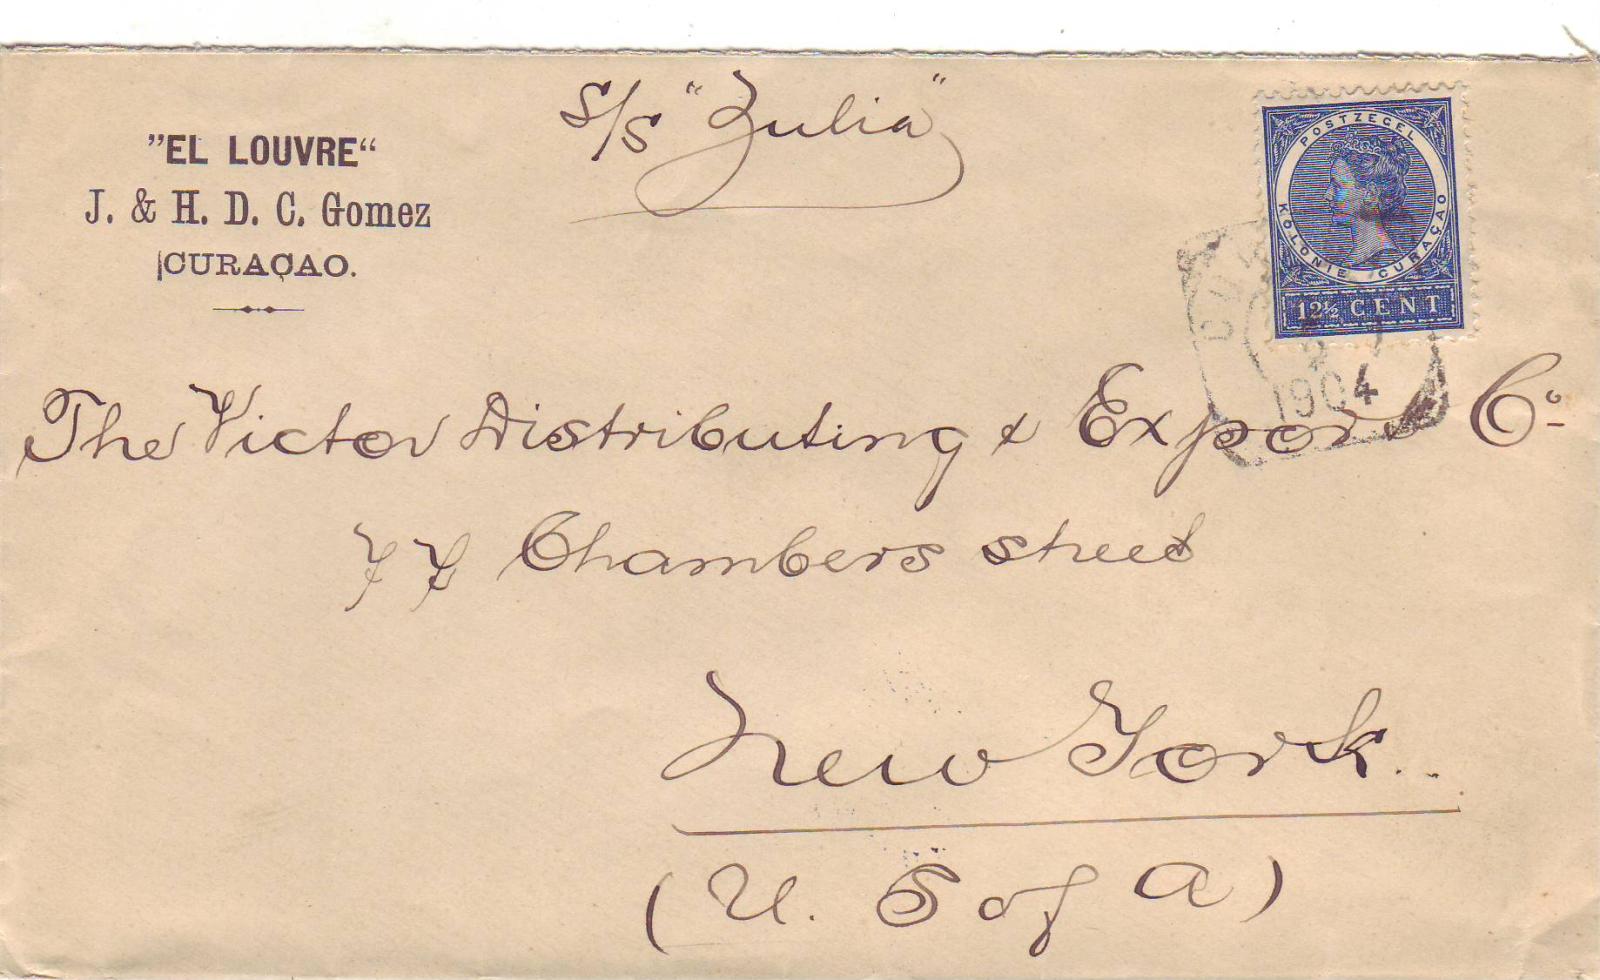 S/S "Zulia"
"EL LOUVRE"
J. & H. D. C. Gomez
CURAÇAO.
POSTZEGEL
KOLONIE CURAÇAO
12½ CENT
1904
The Victor Distributing & Export Co
77 Chambers street
New York.
(U. S of A)